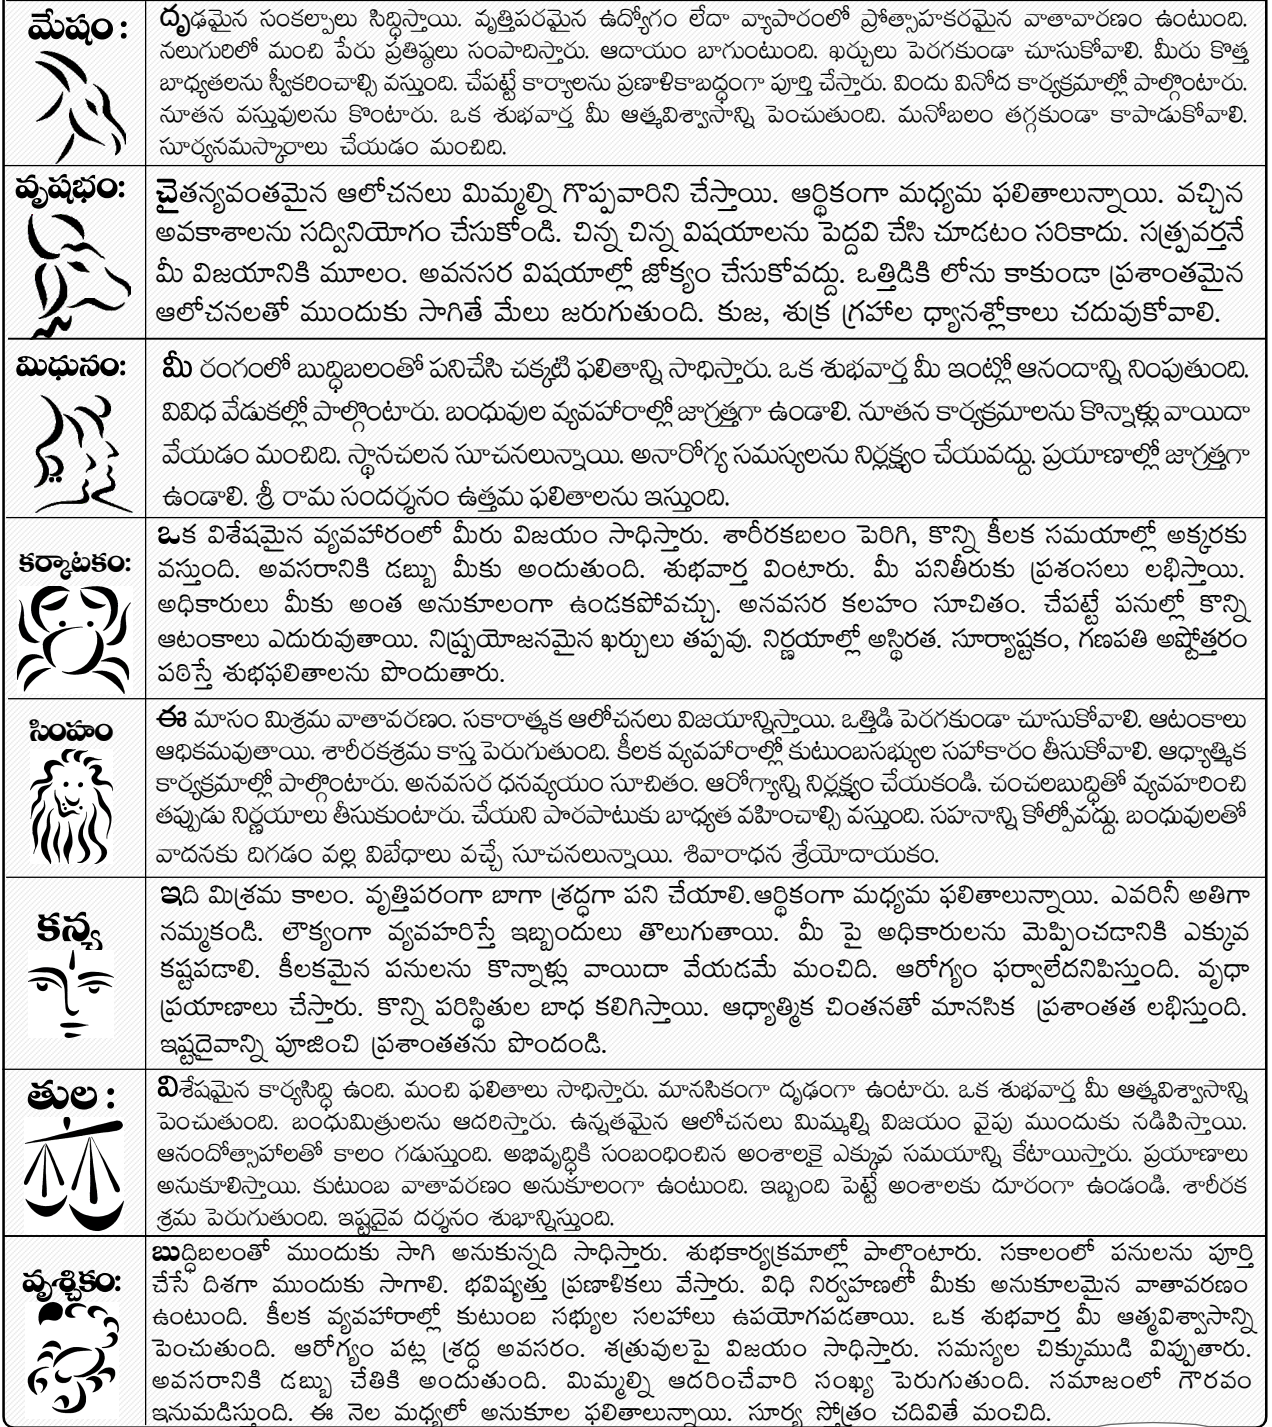 మేషం :
దృఢమైన సంకల్పాలు సిద్ధిస్తాయి. వృత్తిపరమైన ఉద్యోగం లేదా వ్యాపారంలో ప్రోత్సాహకరమైన వాతావారణం ఉంటుంది.
నలుగురిలో మంచి పేరు ప్రతిష్ఠలు సంపాదిస్తారు. ఆదాయం బాగుంటుంది. ఖర్చులు పెరగకుండా చూసుకోవాలి. మీరు కొత్త
బాధ్యతలను స్వీకరించాల్సి వస్తుంది. చేపట్టే కార్యాలను ప్రణాళికాబద్ధంగా పూర్తి చేస్తారు. విందు వినోద కార్యక్రమాల్లో పాల్గొంటారు.
నూతన వస్తువులను కొంటారు. ఒక శుభవార్త మీ ఆత్మవిశ్వాసాన్ని పెంచుతుంది. మనోబలం తగ్గకుండా కాపాడుకోవాలి.
సూర్యనమస్కారాలు చేయడం మంచిది.
వృషభం:
చైతన్యవంతమైన ఆలోచనలు మిమ్మల్ని గొప్పవారిని చేస్తాయి. ఆర్థికంగా మధ్యమ ఫలితాలున్నాయి. వచ్చిన
అవకాశాలను సద్వినియోగం చేసుకోండి. చిన్న చిన్న విషయాలను పెద్దవి చేసి చూడటం సరికాదు. సత్ప్రవర్తనే
మీ విజయానికి మూలం. అవనసర విషయాల్లో జోక్యం చేసుకోవద్దు. ఒత్తిడికి లోను కాకుండా ప్రశాంతమైన
ఆలోచనలతో ముందుకు సాగితే మేలు జరుగుతుంది. కుజ, శుక్ర గ్రహాల ధ్యానశ్లోకాలు చదువుకోవాలి.
మిధునం:
మీ రంగంలో బుద్ధిబలంతో పనిచేసి చక్కటి ఫలితాన్ని సాధిస్తారు. ఒక శుభవార్త మీ ఇంట్లో ఆనందాన్ని నింపుతుంది.
వివిధ వేడుకల్లో పాల్గొంటారు. బంధువుల వ్యవహారాల్లో జాగ్రత్తగా ఉండాలి. నూతన కార్యక్రమాలను కొన్నాళ్లు వాయిదా
వేయడం మంచిది. స్థానచలన సూచనలున్నాయి. అనారోగ్య సమస్యలను నిర్లక్ష్యం చేయవద్దు. ప్రయాణాల్లో జాగ్రత్తగా
ఉండాలి. శ్రీ రామ సందర్శనం ఉత్తమ ఫలితాలను ఇస్తుంది.
కర్కాటకం:
ఒక విశేషమైన వ్యవహారంలో మీరు విజయం సాధిస్తారు. శారీరకబలం పెరిగి, కొన్ని కీలక సమయాల్లో అక్కరకు
వస్తుంది. అవసరానికి డబ్బు మీకు అందుతుంది. శుభవార్త వింటారు. మీ పనితీరుకు ప్రశంసలు లభిస్తాయి.
అధికారులు మీకు అంత అనుకూలంగా ఉండకపోవచ్చు. అనవసర కలహం సూచితం. చేపట్టే పనుల్లో కొన్ని
ఆటంకాలు ఎదురువుతాయి. నిష్ప్రయోజనమైన ఖర్చులు తప్పవు. నిర్ణయాల్లో అస్థిరత. సూర్యాష్టకం, గణపతి అష్టోత్తరం
పఠిస్తే శుభఫలితాలను పొందుతారు.
సింహం
ఈ మాసం మిశ్రమ వాతావరణం. సకారాత్మక ఆలోచనలు విజయాన్నిస్తాయి. ఒత్తిడి పెరగకుండా చూసుకోవాలి. ఆటంకాలు
ఆధికమవుతాయి. శారీరకశ్రమ కాస్త పెరుగుతుంది. కీలక వ్యవహారాల్లో కుటుంబసభ్యుల సహాకారం తీసుకోవాలి. ఆధ్యాత్మిక
కార్యక్రమాల్లో పాల్గొంటారు. అనవసర ధనవ్యయం సూచితం. ఆరోగ్యాన్ని నిర్లక్ష్యం చేయకండి. చంచలబుద్ధితో వ్యవహరించి
తప్పుడు నిర్ణయాలు తీసుకుంటారు. చేయని పొరపాటుకు బాధ్యత వహించాల్సి వస్తుంది. సహనాన్ని కోల్పోవద్దు. బంధువులతో
వాదనకు దిగడం వల్ల విబేధాలు వచ్చే సూచనలున్నాయి. శివారాధన శ్రేయోదాయకం.
కన్య
ఇది మిశ్రమ కాలం. వృత్తిపరంగా బాగా శ్రద్ధగా పని చేయాలి.ఆర్థికంగా మధ్యమ ఫలితాలున్నాయి. ఎవరినీ అతిగా
నమ్మకండి. లౌక్యంగా వ్యవహరిస్తే ఇబ్బందులు తొలుగుతాయి. మీ పై అధికారులను మెప్పించడానికి ఎక్కువ
కష్టపడాలి. కీలకమైన పనులను కొన్నాళ్లు వాయిదా వేయడమే మంచిది. ఆరోగ్యం ఫర్వాలేదనిపిస్తుంది. వృధా
ప్రయాణాలు చేస్తారు. కొన్ని పరిస్థితుల బాధ కలిగిస్తాయి. ఆధ్యాత్మిక చింతనతో మానసిక ప్రశాంతత లభిస్తుంది.
ఇష్టదైవాన్ని పూజించి ప్రశాంతతను పొందండి.
తుల :
విశేషమైన కార్యసిద్ధి ఉంది. మంచి ఫలితాలు సాధిస్తారు. మానసికంగా దృఢంగా ఉంటారు. ఒక శుభవార్త మీ ఆత్మవిశ్వాసాన్ని
పెంచుతుంది. బంధుమిత్రులను ఆదరిస్తారు. ఉన్నతమైన ఆలోచనలు మిమ్మల్ని విజయం వైపు ముందుకు నడిపిస్తాయి.
ఆనందోత్సాహాలతో కాలం గడుస్తుంది. అభివృద్ధికి సంబంధించిన అంశాలకై ఎక్కువ సమయాన్ని కేటాయిస్తారు. ప్రయాణాలు
అనుకూలిస్తాయి. కుటుంబ వాతావరణం అనుకూలంగా ఉంటుంది. ఇబ్బంది పెట్టే అంశాలకు దూరంగా ఉండండి. శారీరక
శ్రమ పెరుగుతుంది. ఇష్టదైవ దర్శనం శుభాన్నిస్తుంది.
వృశ్చికం:
బుద్ధిబలంతో ముందుకు సాగి అనుకున్నది సాధిస్తారు. శుభకార్యక్రమాల్లో పాల్గొంటారు. సకాలంలో పనులను పూర్తి
చేసే దిశగా ముందుకు సాగాలి. భవిష్యత్తు ప్రణాళికలు వేస్తారు. విధి నిర్వహణలో మీకు అనుకూలమైన వాతావరణం
ఉంటుంది. కీలక వ్యవహారాల్లో కుటుంబ సభ్యుల సలహాలు ఉపయోగపడతాయి. ఒక శుభవార్త మీ ఆత్మవిశ్వాసాన్ని
పెంచుతుంది. ఆరోగ్యం పట్ల శ్రద్ధ అవసరం. శత్రువులపై విజయం సాధిస్తారు. సమస్యల చిక్కుముడి విప్పుతారు.
అవసరానికి డబ్బు చేతికి అందుతుంది. మిమ్మల్ని ఆదరించేవారి సంఖ్య పెరుగుతుంది. సమాజంలో గౌరవం
ఇనుమడిస్తుంది. ఈ నెల మధ్యలో అనుకూల ఫలితాలున్నాయి. సూర్య స్తోత్రం చదివితే మంచిది.